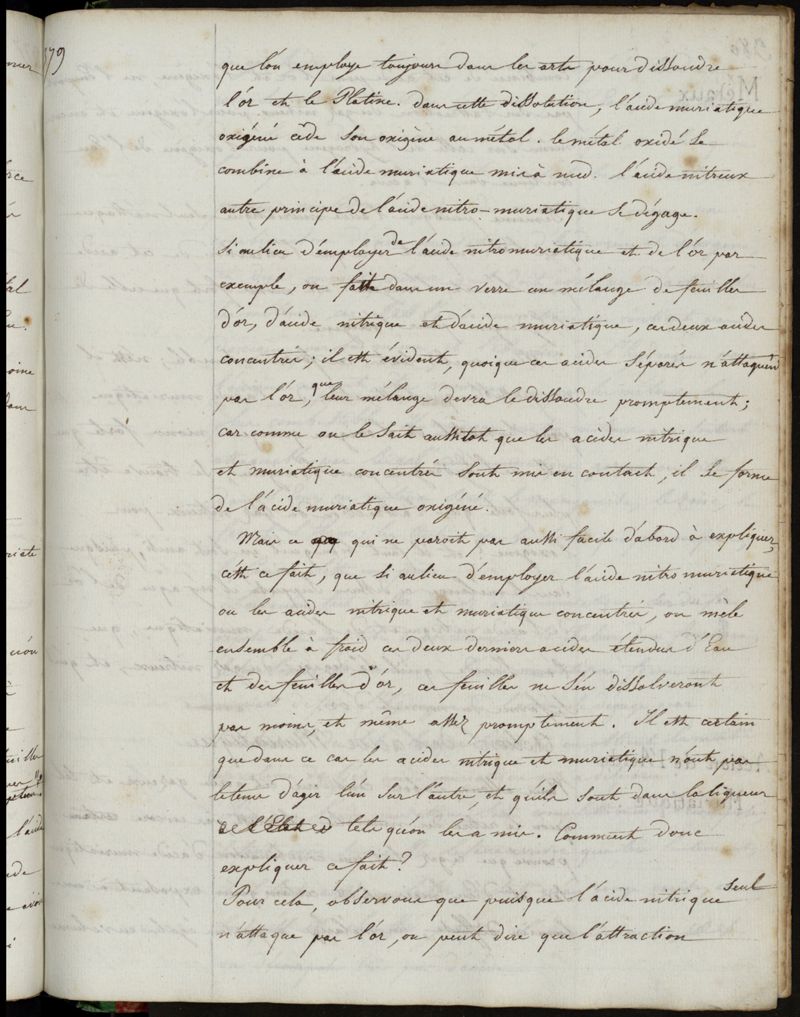 179
que l'on employe toujours dans les arts pour dissoudre
l'or et le Platine. dans cette dissolution, l'acide muriatique
oxigéné cède son oxigène au métal. le métal oxidé se
combine à l'acide muriatique mis à nud. l'acide nitreux
autre principe de l'acide nitro-muriatique se dégage.
Si au lieu d'employer de l'acide nitromuriatique et de l'or par
exemple, on fait dans un verre un mélange de feuilles
d'or, d'acide nitrique et d'acide muriatique, ces deux acides
concentrés; il est évident, quoique ces acides séparés n'attaquent
pas l'or, que leur mélange devra le dissoudre promptement;
car comme on le sait aussitot que les acides nitrique
et muriatique concentrés sont mis en contact, il se forme
de l'acide muriatique oxigéné.
Mais ce qui ne paroit pas aussi facile d'abord à expliquer,
c'est ce fait, que si au lieu d'employer l'acide nitro muriatique
ou les acides nitrique et muriatique concentrés, on mèle
ensemble à froid ces deux derniers acides étendus d'Eau
et des feuilles d'or, ces feuilles ne s'en dissolveront
pas moins, et même assez promptement. Il est certain
que dans ce cas les acides nitrique et muriatique n'ont pas
le tems d'agir l'un sur l'autre et qu'ils sont dans la liqueur
tels qu'on les a mis. Comment donc
expliquer ce fait?
Pour cela, observons que puisque l'acide nitrique seul
n'attaque pas l'or, on peut dire que l'attraction